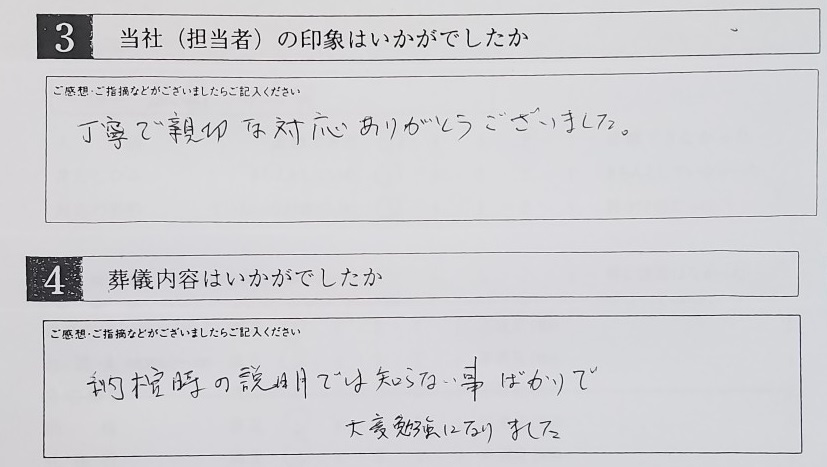 3 当社（担当者）の印象はいかがでしたか
ご感想・ご指摘などがございましたらご記入ください
丁寧で親切な対応ありがとうございました。
4 葬儀内容はいかがでしたか
ご感想・ご指摘などがございましたらご記入ください
納棺時の説明では知らない事ばかりで
大変勉強になりました